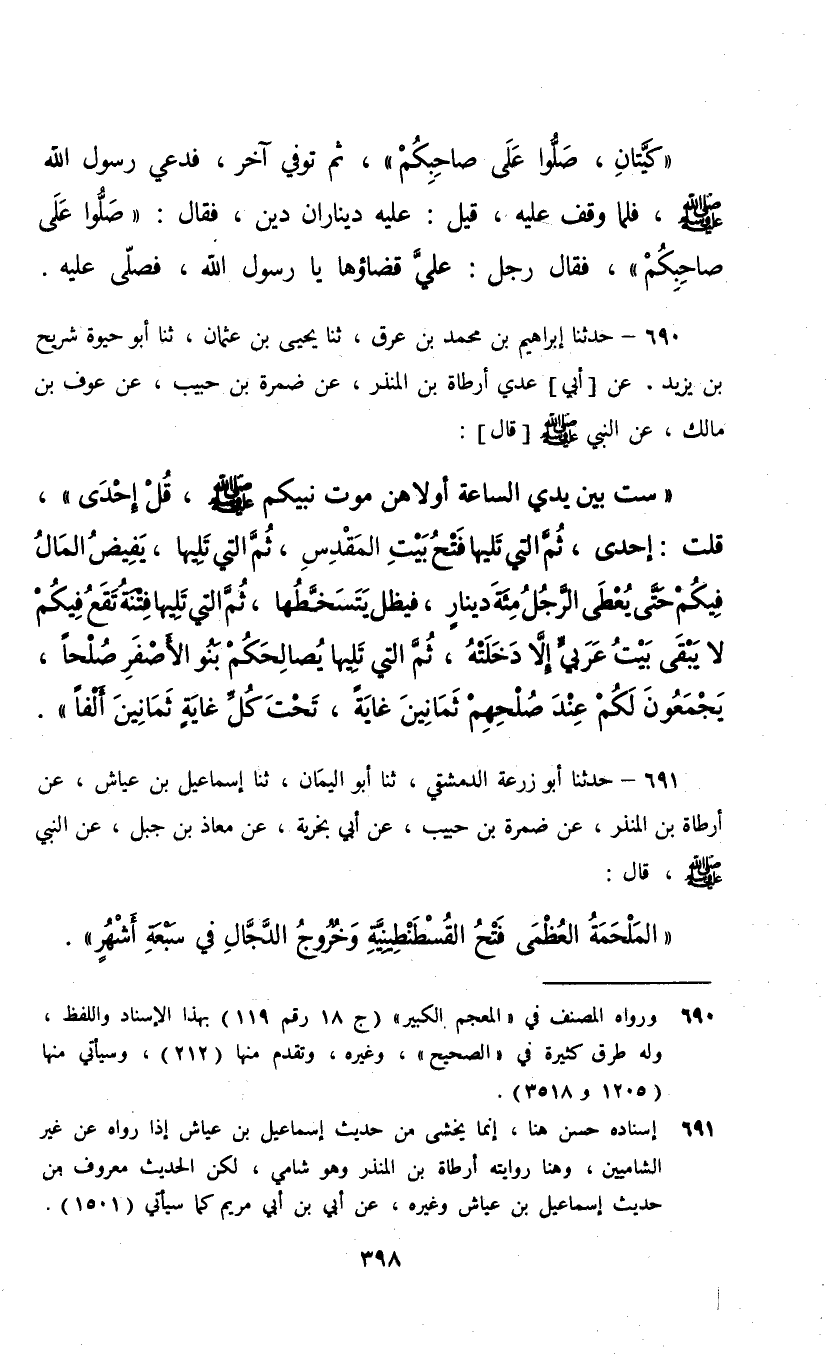 «كَيَّتانِ ، صَلُّوا عَلَى صاحِبِكُمْ» ، ثم توفي آخر ، فدعي رسول الله
ﷺ ، فلما وقف عليه ، قيل : عليه ديناران دين ، فقال : « صَلُّوا عَلَى
صاحِبِكُمْ» ، فقال رجل : عليَّ قضاؤها يا رسول الله ، فصلّى عليه .
٦٩٠ – حدثنا إبراهيم بن محمد بن عرق ، ثنا يحيى بن عثمان ، ثنا أبو حيوة شريح
بن يزيد . عن [أبي] عدي أرطاة بن المنذر ، عن ضمرة بن حبيب ، عن عوف بن
مالك ، عن النبي ﷺ [قال] :
« ست بين يدي الساعة أولاهن موت نبيكم ﷺ ، قُلْ إِحْدَى » ،
قلت : إحدى ، ثُمَّ التي تَليها فَتْحُ بَيْتِ المَقْدِسِ ، ثُمَّ التي تَلِيها ، يَفِيضُ المَالُ
فِيكُمْ حَتَّى يُعْطَى الرَّجُلُ مِئَةَ دينارٍ ، فيظل يَتَسَخَّطُها ، ثُمَّ التي تَلِيها فِتْنَةٌ تَقَعُ فِيكُمْ
لا يَبْقَى بَيْتُ عَرَبيٍّ إِلَّا دَخَلَتْهُ ، ثُمَّ التي تَلِيها يُصالِحَكُمْ بَنُو الأَصْفَرِ صُلْحاً ،
يَجْمَعُونَ لَكُمْ عِنْدَ صُلْحِهِمْ ثَمَانِينَ غايَةً ، تَحْتَ كُلِّ غايَةٍ ثَمَانِينَ أَلْفاً » .
٦٩١ – حدثنا أبو زرعة الدمشقي ، ثنا أبو اليمان ، ثنا إسماعيل بن عياش ، عن
أرطاة بن المنذر ، عن ضمرة بن حبيب ، عن أبي بخرية ، عن معاذ بن جبل ، عن النبي
ﷺ ، قال :
« المَلْحَمَةُ العُظْمَى فَتْحُ القُسْطَنْطِينِيَّةِ وَخُرُوجُ الدَّجَّالِ في سَبْعَةِ أَشْهُرٍ» .
٦٩٠ ورواه المصنف في «المعجم الكبير» (ج ١٨ رقم ١١٩) بهذا الإسناد واللفظ ،
وله طرق كثيرة في «الصحيح» ، وغيره ، وتقدم منها (٢١٢) ، وسيأتي منها
(١٢٠٥ و ٣٥١٨) .
٦٩١ إسناده حسن هنا ، إنما يخشى من حديث إسماعيل بن عياش إذا رواه عن غير
الشاميين ، وهنا روايته أرطاة بن المنذر وهو شامي ، لكن الحديث معروف من
حديث إسماعيل بن عياش وغيره ، عن أبي بن أبي مريم كما سيأتي (١٥٠١) .
٣٩٨